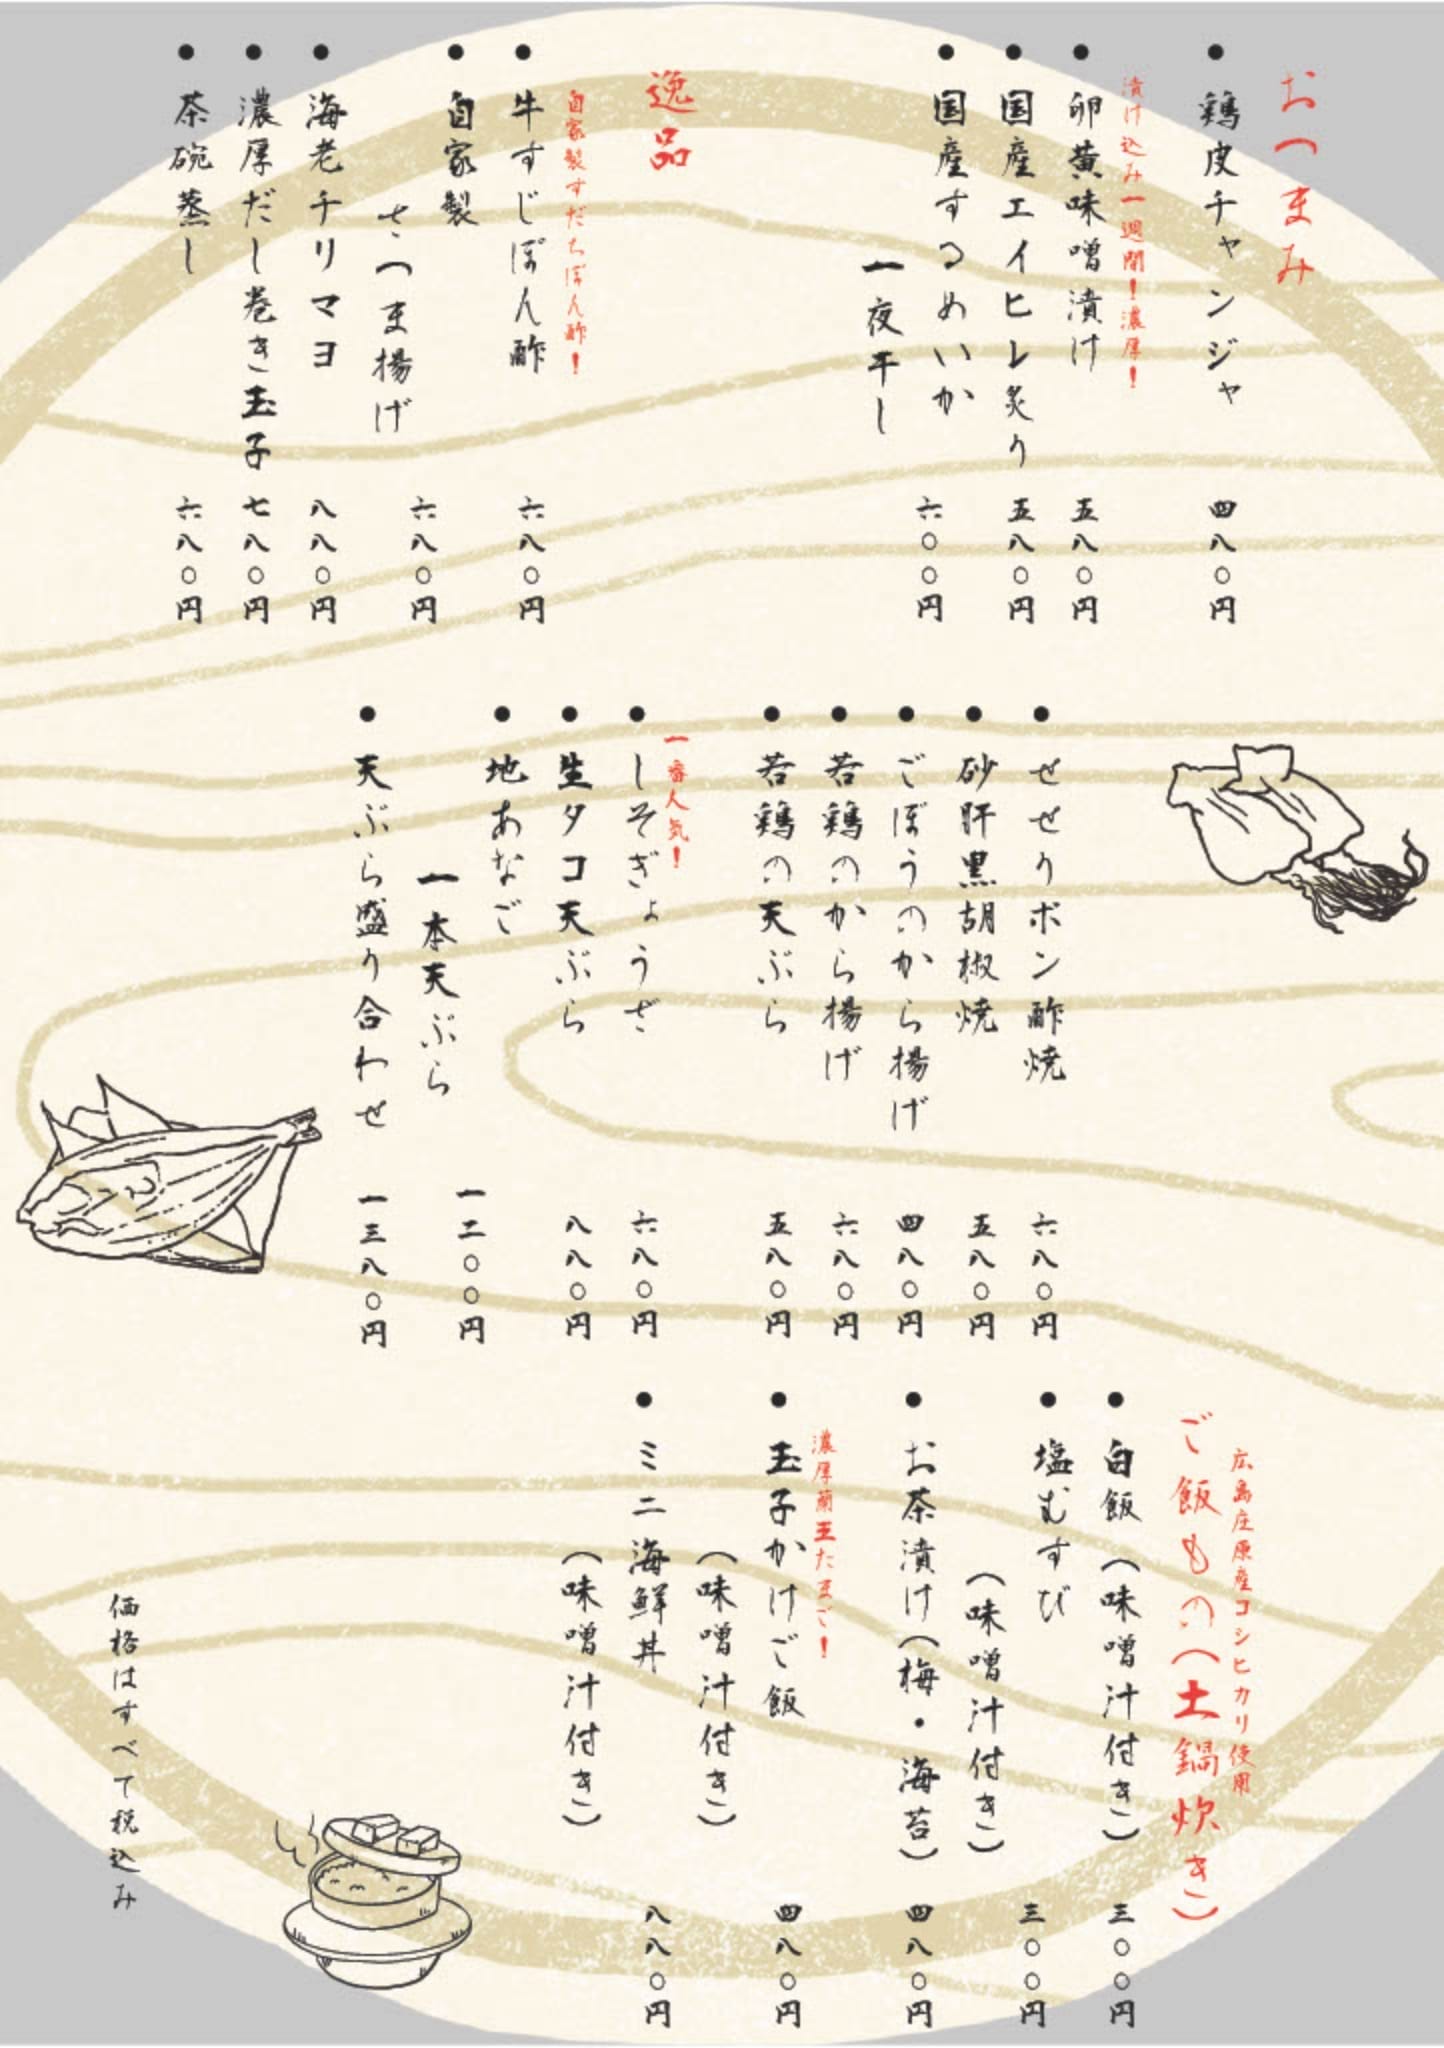 おつまみ
●鶏皮チャンジャ 四八〇円
漬け込み一週間！濃厚！
●卵黄味噌漬け 五八〇円
●国産エイヒレ炙り 五八〇円
●国産するめいか
一夜干し 六〇〇円
逸品
自家製すだちぽん酢！
●牛すじぽん酢 六八〇円
●自家製
さつま揚げ 六八〇円
●海老チリマヨ 八八〇円
●濃厚だし巻き玉子 七八〇円
●茶碗蒸し 六八〇円
●せせりポン酢焼 六八〇円
●砂肝黒胡椒焼 五八〇円
●ごぼうのから揚げ 四八〇円
●若鶏のから揚げ 六八〇円
●若鶏の天ぷら 五八〇円
一番人気！
●しそぎょうざ 六八〇円
●生タコ天ぷら 八八〇円
●地あなご
一本天ぷら 一二〇〇円
●天ぷら盛り合わせ 一三八〇円
広島庄原産コシヒカリ使用
ご飯もの（土鍋炊き）
●白飯（味噌汁付き） 三〇〇円
●塩むすび
（味噌汁付き） 三〇〇円
●お茶漬け（梅・海苔） 四八〇円
濃厚蘭王たまご！
●玉子かけご飯
（味噌汁付き） 四八〇円
●ミニ海鮮丼
（味噌汁付き） 八八〇円
価格はすべて税込み